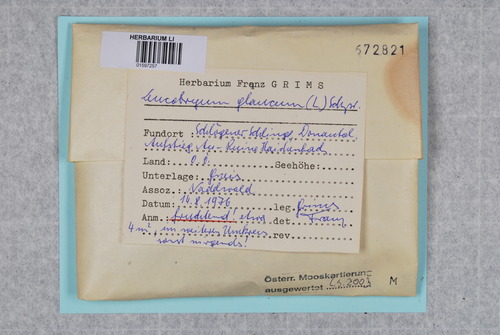 HERBARIUM LI
01597257
572821
Herbarium Franz GRIMS
Leucobryum glaucum (L.) Schpr.
Fundort: Schlögener Schlinge, Donautal
Aufstieg
Land: O.Ö. Seehöhe:
Unterlage:
Assoz. Waldwald
Datum: 14.8.1976 leg. Grims
Anm. fruchtend! etwa det. Franz
4 m², im weiteren Umkreis rev.
sonst nirgends!
Österr. Mooskartierung
ausgewertet M